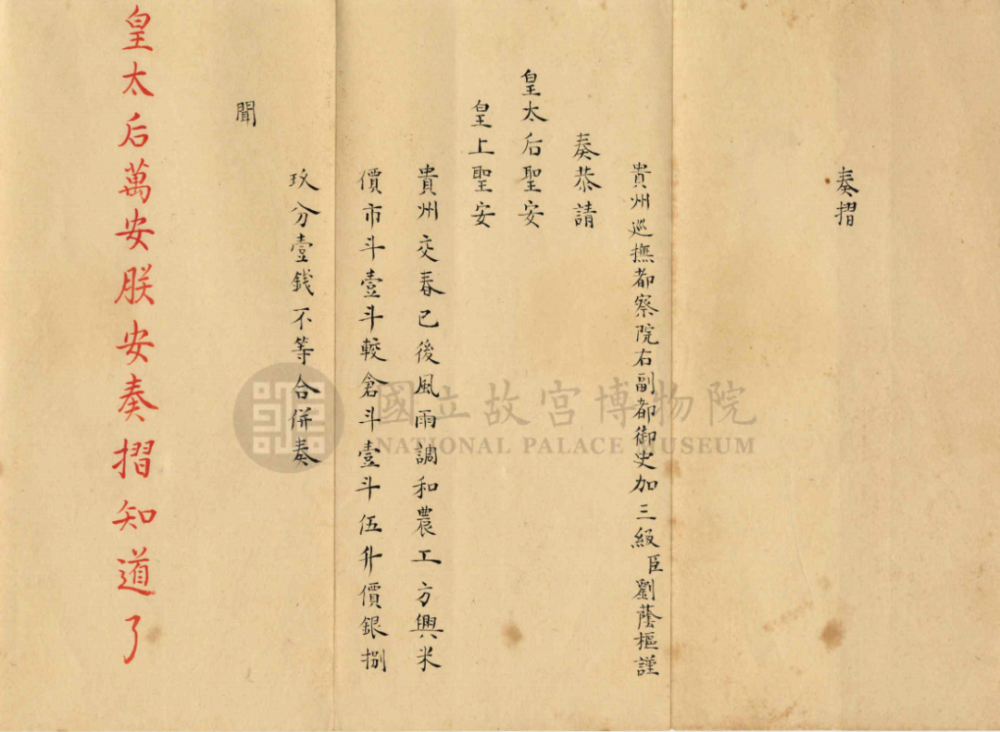 奏摺
貴州巡撫都察院右副都御史加三級臣劉蔭樞謹
奏恭請
皇太后聖安
皇上聖安
貴州交春已後風雨調和農工方興米
價市斗壹斗較倉斗壹斗伍升價銀捌
玖分壹錢不等合併奏
聞
皇太后萬安朕安奏摺知道了
國立故宮博物院
NATIONAL PALACE MUSEUM